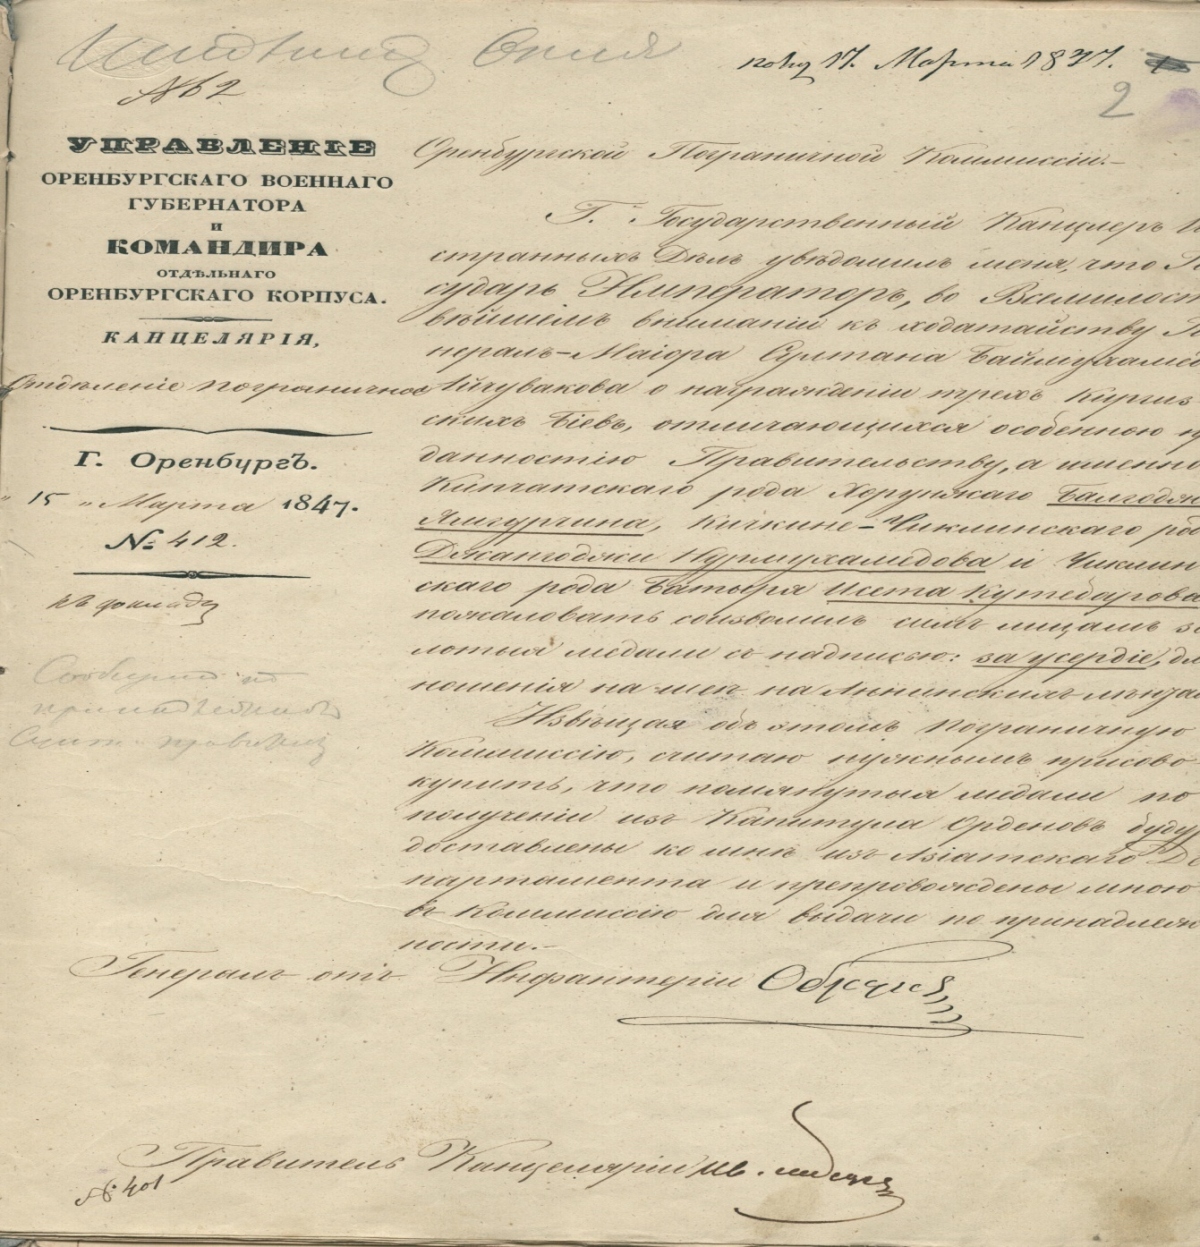 № 2
полу 17. Марта 1847.
2
УПРАВЛЕНІЕ
ОРЕНБУРГСКАГО ВОЕННАГО
ГУБЕРНАТОРА
И
КОМАНДИРА
ОТДѢЛЬНАГО
ОРЕНБУРГСКАГО КОРПУСА.
КАНЦЕЛЯРІЯ,
Отдѣленіе пограничное
Г. Оренбургъ.
" 15 " Марта 1847.
№ 412.
къ докладу
Оренбургской Пограничной Коммиссіи.
Г. Государственный Канцлеръ И
странныхъ Дѣлъ увѣдомилъ меня, что Го
сударь Императоръ, во Всемилост
вѣйшемъ вниманіи къ ходатайству Ге
нералъ-Маіора Султана Баймухамед
Айчувакова о награжденіи трехъ Киргиз
скихъ Біевъ, отличающихся особенною п
данностію Правительству, а именно
Кипчатскаго рода Хорунжаго Балгодж
Ямгурчина, Кичкине-Чиклинскаго ро
Джангоджи Нурмухамедова и Чиклин
скаго рода Батыря Исета Кутебарова
пожаловать соизволилъ симъ лицамъ зо
лотыя медали съ надписью: за усердіе, дл
ношенія на шеѣ на Аннинскихъ лентах
Извѣщая объ этомъ Пограничную
Коммиссію, считаю нужнымъ присово
купить, что помянутыя медали по
полученіи изъ Капитула Орденовъ буду
доставлены ко мнѣ изъ Азіатскаго Де
партамента и препровождены мною
въ Коммиссію для выдачи по принадлеж
ности.
Генералъ отъ Инфантеріи Обручевъ
Правитель Канцеляріи
№ 401